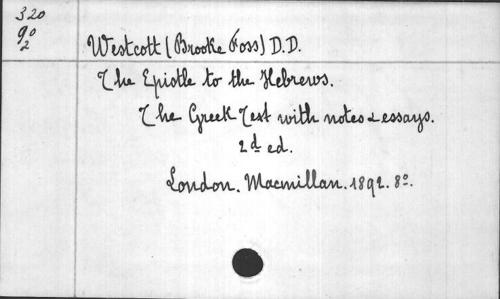 320
90
2
Westcott (Brooke Foss) D.D.
The Epistle to the Hebrews.
The Greek Test with notes & essays.
2d ed.
London. Macmillan. 1892. 8o.